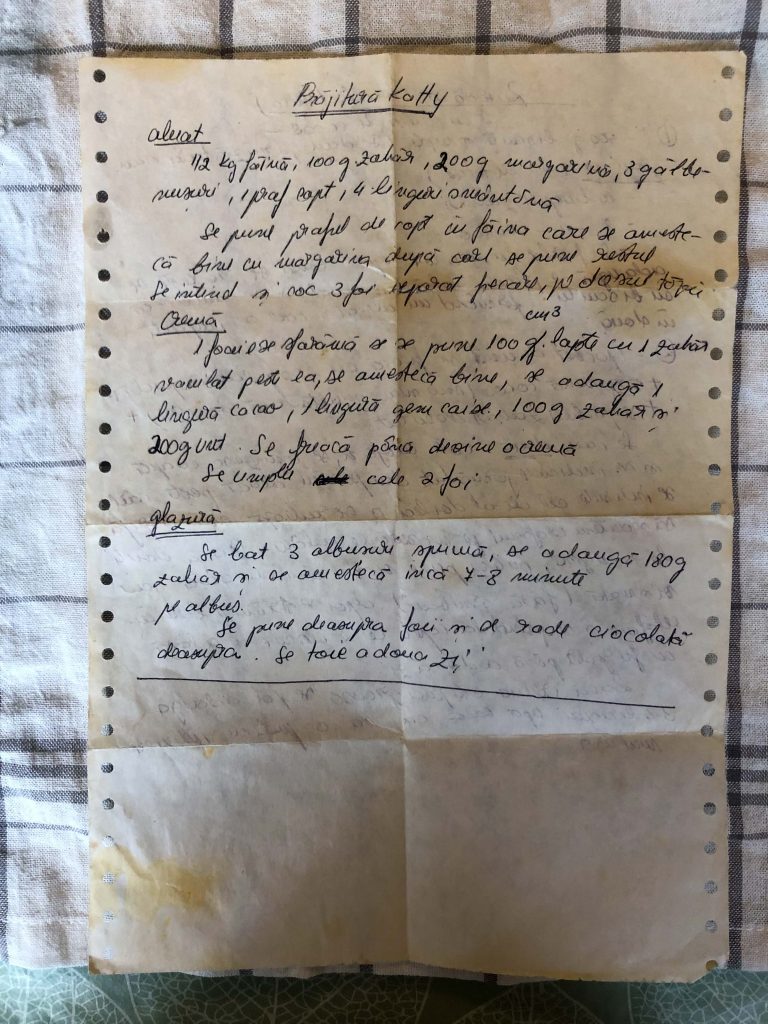 Prăjitură Katty
aluat
1/2 kg făină, 100 g zahăr, 200 g margarină, 3 gălbe-
nușuri, 1 praf copt, 4 linguri smântână
Se pune praful de copt în făina care se ameste-
că bine cu margarina după care se pune restul
Se întind și coc 3 foi separat fiecare, pe dosul tăvii
Cremă
cm3
1 foaie se sfarămă se se pune 100 g. lapte cu 1 zahăr
vanilat peste ea, se amestecă bine, se adaugă 1
lingură cacao, 1 lingură gem caise, 100 g zahăr și
200 g unt. Se freacă până devine o cremă
Se umple cele 2 foi
glazură
Se bat 3 albușuri spumă, se adaugă 180 g
zahăr și se amestecă încă 7-8 minute
pe albuș.
Se pune deasupra foii și se rade ciocolată
deasupra. Se taie a doua zi